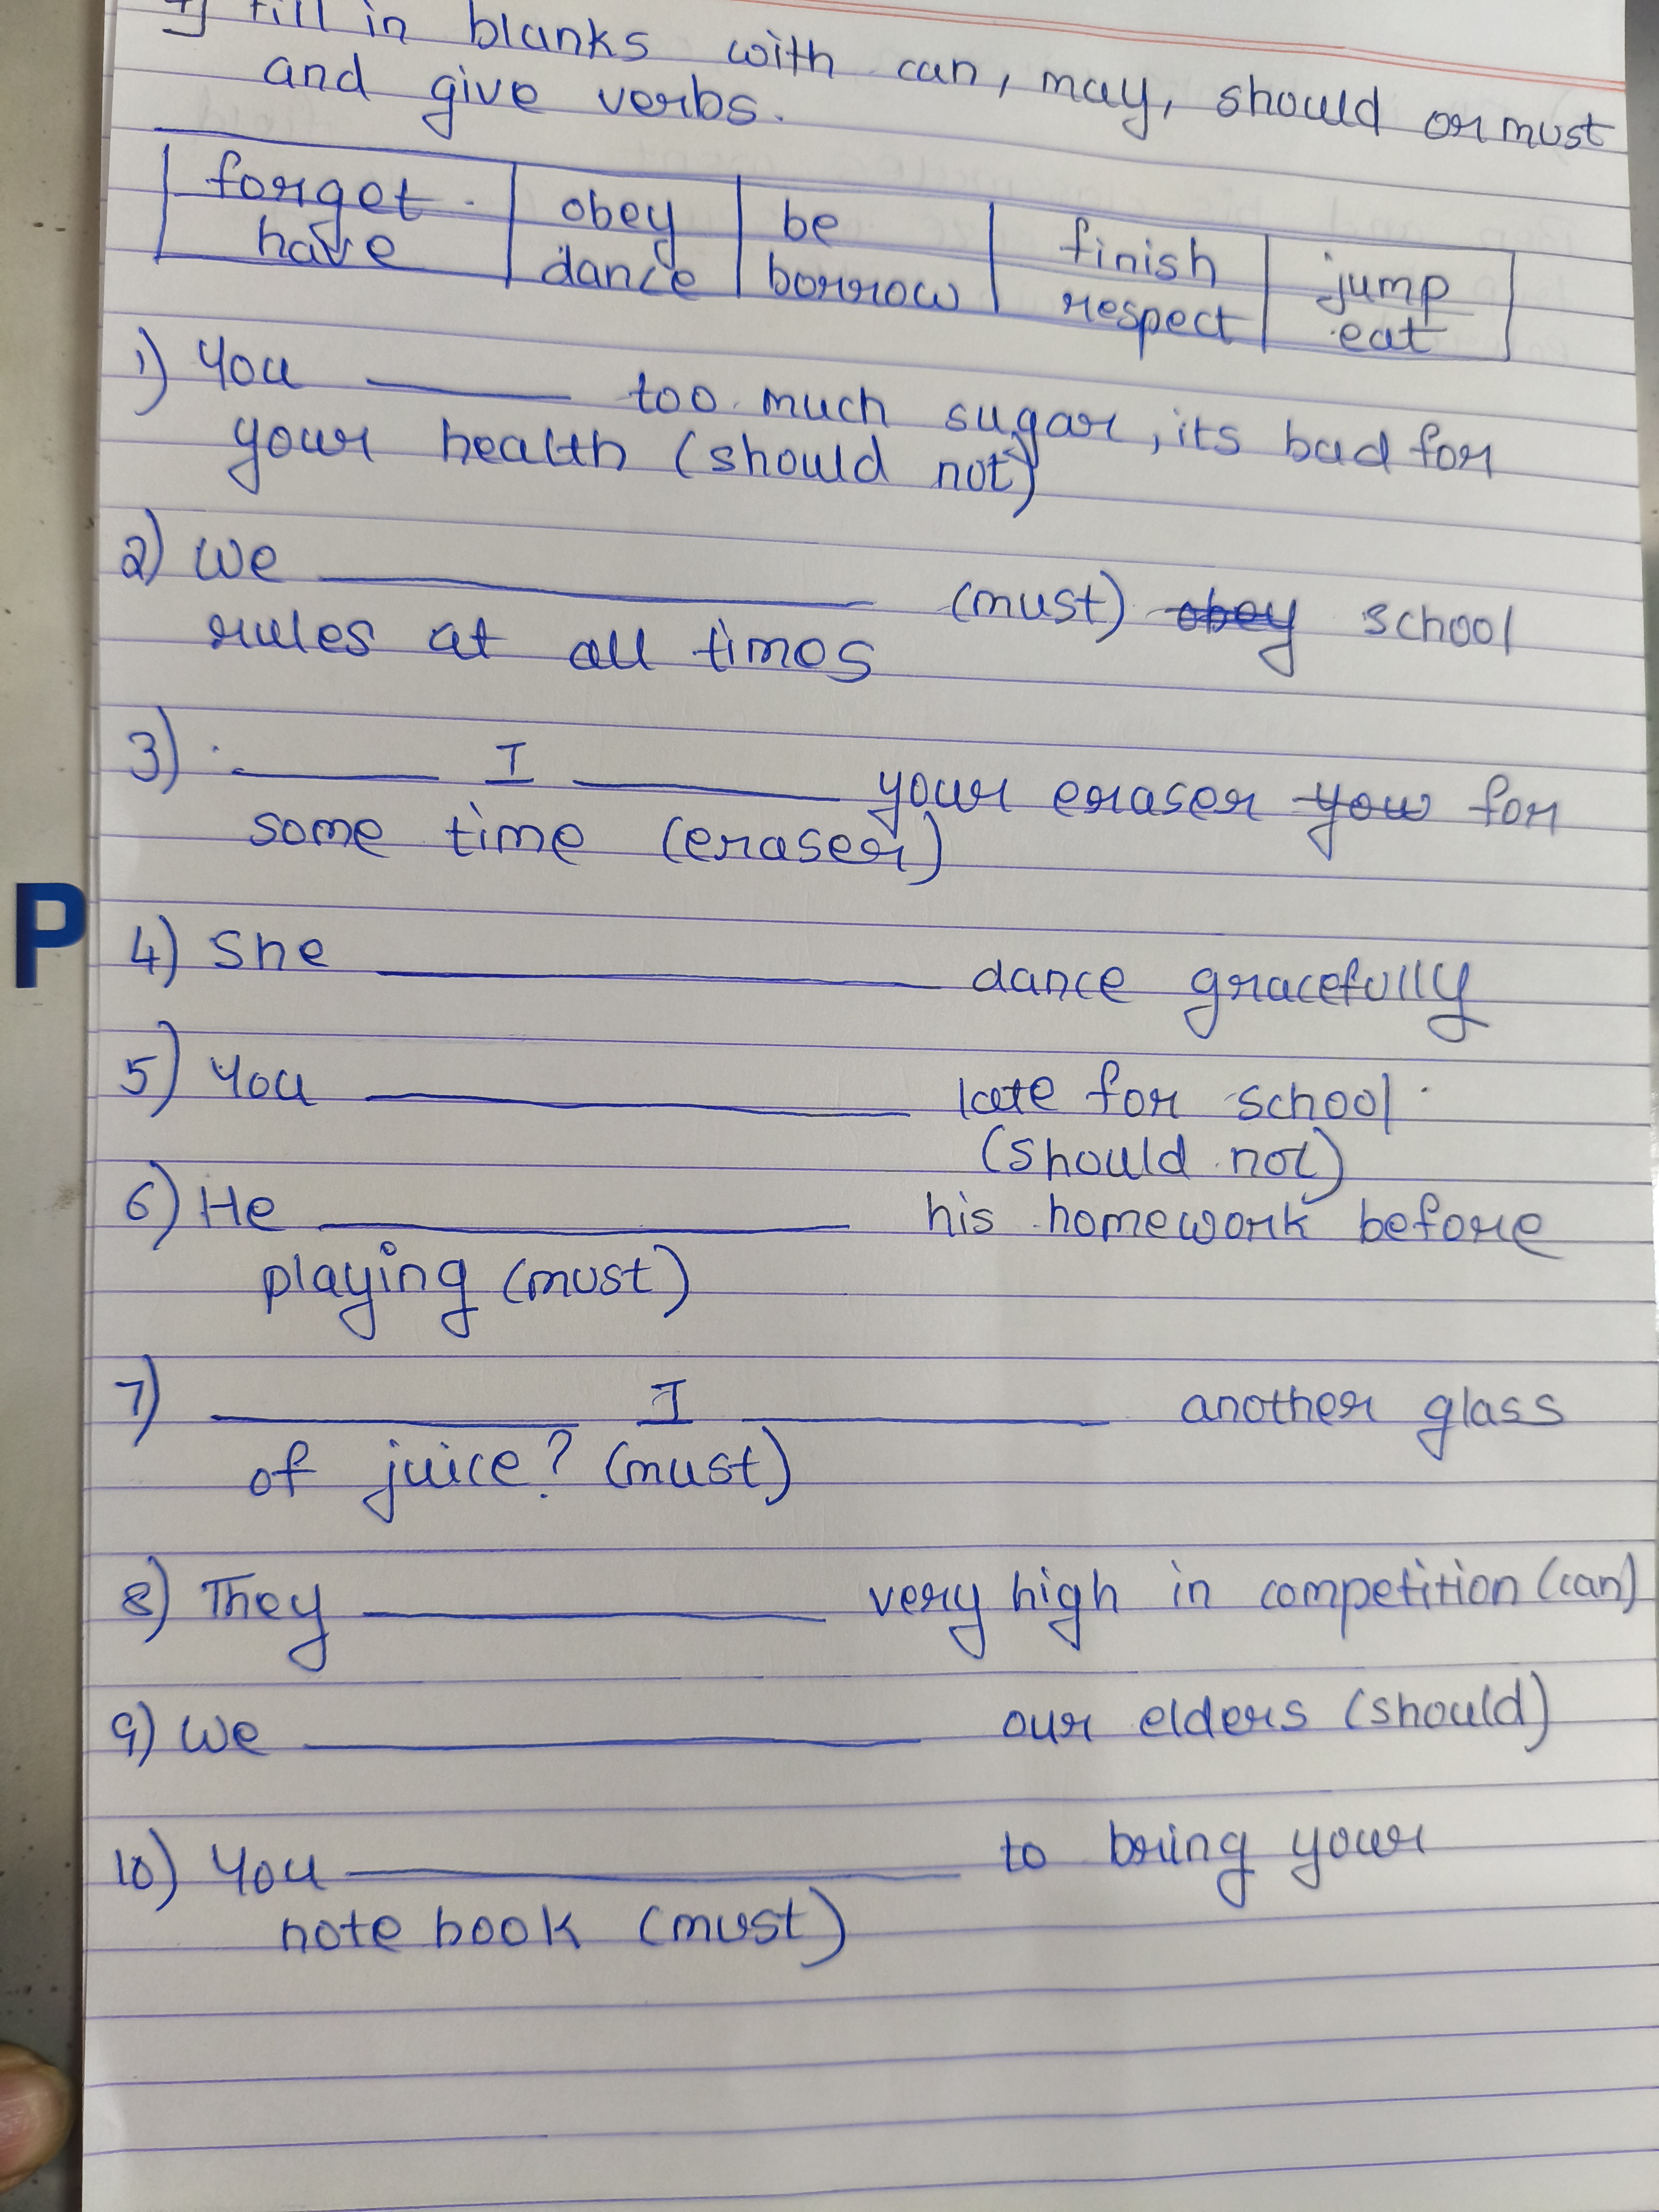 fill in blanks with can, may, should or must
and give verbs.
forget obey be finish jump
have dance borrow respect eat
1) You ______ too much sugar, its bad for
your health (should not)
2) We ______ (must) obey school
rules at all times
3) ______ I ______ your eraser your for
some time (eraser)
P
4) She ______ dance gracefully
5) You ______ late for school
(should not)
6) He ______ his homework before
playing (must)
7) ______ I ______ another glass
of juice? (must)
8) They ______ very high in competition (can)
9) We ______ our elders (should)
10) You ______ to bring your
note book (must)